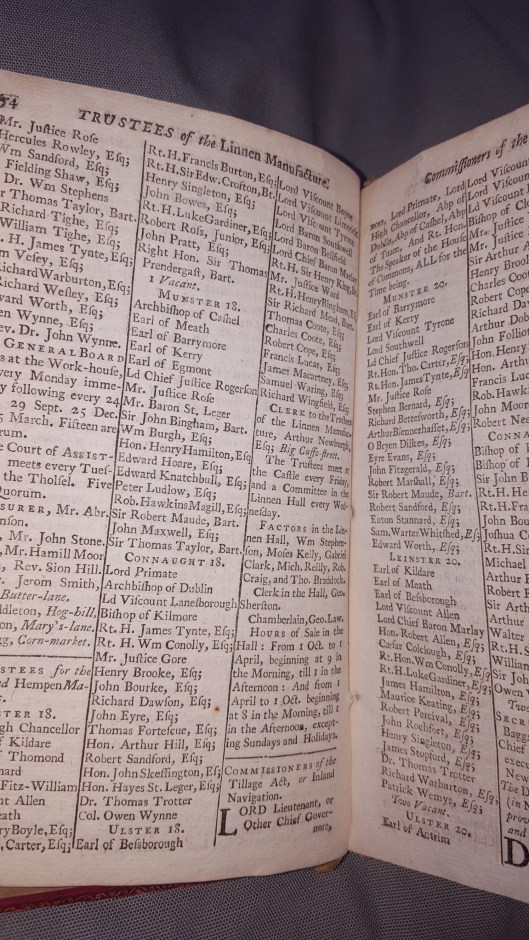 54
TRUSTEES of the Linnen Manufacture.
Mr. Juſtice Roſe
Hercules Rowley, Eſq;
Wm Sandford, Eſq;
Fielding Shaw, Eſq;
Dr. Wm Stephens
Thomas Taylor, Bart.
Richard Tighe, Eſq;
William Tighe, Eſq;
H. James Tynte, Eſq;
Veſey, Eſq;
Richard Warburton, Eſq;
Richard Weſley, Eſq;
Worth, Eſq;
Wynne, Eſq;
Dr. John Wynne.
GENERAL BOARD
at the Work-houſe,
every Monday imme-
following every 24
29 Sept. 25 Dec.
March. Fifteen are
Court of ASSIST-
meets every Tueſ-
the Tholſel. Five
Quorum.
Mr. Abr.
Mr. John Stone.
Mr. Hamill Moor
Rev. Sion Hill.
Jerom Smith,
Butter-lane.
Hog-hill.
Mary's-lane.
Corn-market.
for the
Hempen Ma-
18.
Chancellor
Kildare
Thomond
Fitz-William
Allen
Meath
Boyle, Eſq;
Carter, Eſq;
Rt. H. Francis Burton, Eſq;
Rt. H. Sir Edw. Crofton, Bt.
Henry Singleton, Eſq;
John Bowes, Eſq;
Rt. H. Luke Gardiner, Eſq;
Robert Roſs, Junior, Eſq;
John Pratt, Eſq;
Right Hon. Sir Thomas
Prendergaſt, Bart.
1 Vacant.
MUNSTER 18.
Archbiſhop of Caſhel
Earl of Meath
Earl of Barrymore
Earl of Kerry
Earl of Egmont
Ld Chief Juſtice Rogerſon
Mr. Juſtice Roſe
Mr. Baron St. Leger
Sir John Bingham, Bart.
Wm Burgh, Eſq;
Hon. Henry Hamilton, Eſq;
Edward Hoare, Eſq;
Edward Knatchbull, Eſq;
Peter Ludlow, Eſq;
Rob. Hawkins Magill, Eſq;
Sir Robert Maude, Bart.
John Maxwell, Eſq;
Sir Thomas Taylor, Bart.
CONNAUGHT 18.
Lord Primate
Archbiſhop of Dublin
Ld Viſcount Laneſborough
Biſhop of Kilmore
Rt. H. James Tynte, Eſq;
Rt. H. Wm Conolly, Eſq;
Mr. Juſtice Gore
Henry Brooke, Eſq;
John Bourke, Eſq;
Richard Dawſon, Eſq;
John Eyre, Eſq;
Thomas Forteſcue, Eſq;
Hon. Arthur Hill, Eſq;
Robert Sandford, Eſq;
Hon. John Skeffington, Eſ;
Hon. Hayes St. Leger, Eſq;
Dr. Thomas Trotter
Col. Owen Wynne
ULSTER 18.
Earl of Beſborough
Lord Viſcount Boyne
Lord Viſcount
Lord Viſcount Tyrone
Lord Baron Southwell
Lord Baron Bellfield
Lord Chief Baron Marlay
Rt. H. Sir Henry King, Bt.
Mr. Juſtice Ward
Rt. H. Henry Bingham, Eſ;
Sir Richard Mead, Bart.
Thomas Coote, Eſq;
Charles Coote, Eſq;
Robert Cope, Eſq;
Francis Lucas, Eſq;
James Macartney, Eſq;
Samuel Waring, Eſq;
Richard Wingfield, Eſq;
CLERK to the Truſtees
of the Linnen Manufac-
ture, Arthur Newburgh,
Eſq; Big Cuffe-ſtreet.
The Truſtees meet at
the Caſtle every Friday,
and a Committee in the
Linnen Hall every Wed-
neſday.
FACTORS in the Lin-
nen Hall, Wm Stephen-
ſon, Moſes Kelly, Gabriel
Clark, Mich. Reilly, Rob.
Craig, and Tho. Braddock.
Clerk in the Hall, Geo.
Sherſton.
Chamberlain, Geo. Law.
HOURS of Sale in the
Hall: From 1 Oct. to 1
April, beginning at 9 in
the Morning, till 1 in the
Afternoon: And from 1
April to 1 Oct. beginning
at 8 in the Morning, till 1
in the Afternoon, except-
ing Sundays and Holidays.
COMMISSIONERS of the
Tillage Act, or Inland
Navigation.
LORD Lieutenant, or
Other Chief Gover-
nors,
Commiſſioners of the
nors, Lord Primate, Lord
High Chancellor, Abp of
Dublin, Abp of Caſhel, Abp
of Tuam, And Rt. Hon.
The Speaker of the Houſe
of Commons, ALL for the
Time being.
MUNSTER 20.
Earl of Barrymore
Earl of Kerry
Lord Viſcount Tyrone
Lord Southwell
Ld Chief Juſtice Rogerſon
Rt. Hon. Tho. Carter, Eſq;
Rt. Hon. James Tynte, Eſ;
Mr. Juſtice Roſe
Stephen Bernard, Eſq;
Richard Betteſworth, Eſq;
Arthur Blennerhaſſet, Eſq;
O Bryen Dilkes, Eſq;
Eyre Evans, Eſq;
John Fitzgerald, Eſq;
Robert Marſhall, Eſq;
Sir Robert Maude, Bart.
Robert Sandford, Eſq;
Eaton Stannard, Eſq;
Sam. Warter Whitſhed, Eſ;
Edward Worth, Eſq;
LEINSTER 20.
Earl of Kildare
Earl of Meath
Earl of Beſborough
Lord Viſcount Allen
Lord Chief Baron Marlay
Hon. Robert Allen, Eſq;
Cæſar Colclough, Eſq;
Rt. Hon. Wm Conolly, Eſq;
Rt. H. Luke Gardiner, Eſq;
James Hamilton, Eſq;
Maurice Keating, Eſq;
Robert Percival, Eſq;
John Rochfort, Eſq;
Henry Singleton, Eſq;
James Stopford, Eſq;
Dr. Thomas Trotter
Richard Warburton, Eſq;
Patrick Wemys, Eſq;
Two Vacant.
ULSTER 20.
Earl of Antrim
Lord Viſcount
Lord Viſcount
Ld Viſcount
Biſhop of
Mr. Juſtice
Mr. Juſtice
Sir Arthur
Henry Brook
Charles Coote
Robert Cope
Richard
Arthur Dob
John Follio
Hon. Arthur
Francis Lucas
Rob. Hawk
John Moor
Robert Nee
CONNA
Biſhop of
Biſhop of
Sir John B
Rt. H. He
Rt. H. Fra
John Bour
Joſhua Co
Rt. H. Sir
Michael
Arthur
Robert
Arthur
Walter
Rt. H. S
William
Sir John
Owen
Two
SECR
Bagga
Chief
execu
New
The D
(in
prov
and
D